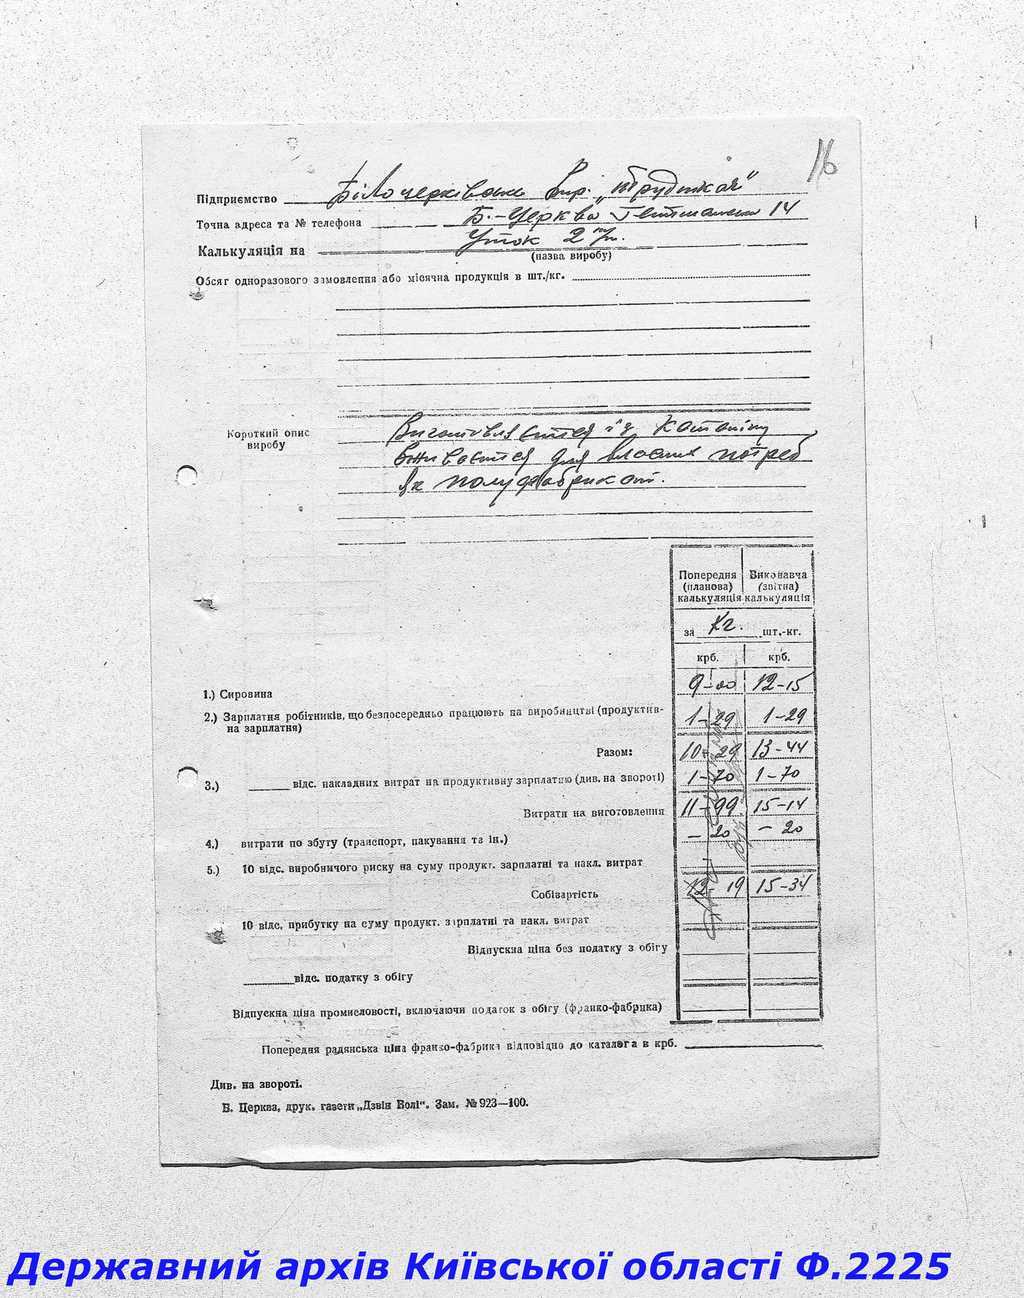 16
Підприємство Білоцерківське Вир. „Трудткач"
Точна адреса та № телефона Б.-Церква Гетманська 14
Калькуляція на Уток 2
(назва виробу)
Обсяг одноразового замовлення або місячна продукція в шт./кг.
Короткий опис виробу
Виготовляється із котоніну
вживається для власних потреб
як полуфабрикат.
Попередня (планова) калькуляція Виконавча (звітна) калькуляція
за Кг. шт.-кг.
крб. крб.
1.) Сировина 9-00 12-15
2.) Зарплатня робітників, що безпосередньо працюють на виробництві (продуктив-
на зарплатня) 1-29 1-29
Разом: 10-29 13-44
3.) ______ відс. накладних витрат на продуктивну зарплатню (див. на звороті) 1-70 1-70
Витрати на виготовлення 11-99 15-14
4.) витрати по збуту (транспорт, пакування та ін.) -20 -20
5.) 10 відс. виробничого риску на суму продукт. зарплатні та накл. витрат
Собівартість 12-19 15-34
10 відс. прибутку на суму продукт. зарплатні та накл. витрат
Відпускна ціна без податку з обігу
______ відс. податку з обігу
Відпускна ціна промисловості, включаючи податок з обігу (франко-фабрика)
Попередня радянська ціна франко-фабрика відповідно до каталога в крб.
Див. на звороті.
Б. Церква, друк. газети „Дзвін Волі". Зам. № 923—100.
Державний архів Київської області Ф.2225